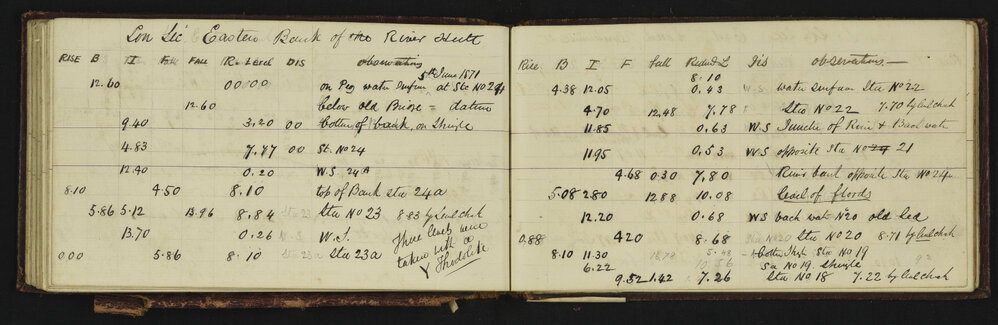 Lon Sec Eastern Bank of the River Hutt
RISE B I FALL FALL Rx Level DIS observations
5th June 1871
12.60 00 00 on Peg water surface at Sta No 24
12.60 below old Bridge = datum
9.40 3.20 00 bottom of bank, on shingle
4.83 7.77 00 St. No 24
12.40 0.20 W.S. 24A
8.10 4.50 8.10 top of Bank sta 24a
5.86 5.12 13.96 8.84 Sta 23 Sta No 23 8.83 by level chck
13.70 0.26 W.S. W.S. These levels were
taken with a
Theodolite
0.00 5.86 8.10 Sta 23a Sta 23a
Rise B I F Fall Redud L Dis observations
8.10
4.38 12.05 0.43 W.S water surface Sta No 22
4.70 12.48 7.78 Sta No 22 7.70 by level chck
11.85 0.63 W.S Junctn of River & Backwater
11.95 0.53 W.S opposite Sta No 24 21
4.68 0.30 7.80 River bank opposite Sta No 24
5.08 2.80 12.88 10.08 level of floods
12.20 0.68 WS back water No 20 old bed
0.88 4.20 8.68 Sta No 20 Sta No 20 8.71 by level chck
8.10 11.30 18.78 5.48 bottom Sta No 19
6.22 Sta No 19. shingle
9.52 1.42 7.26 Sta No 18 7.22 by level chck